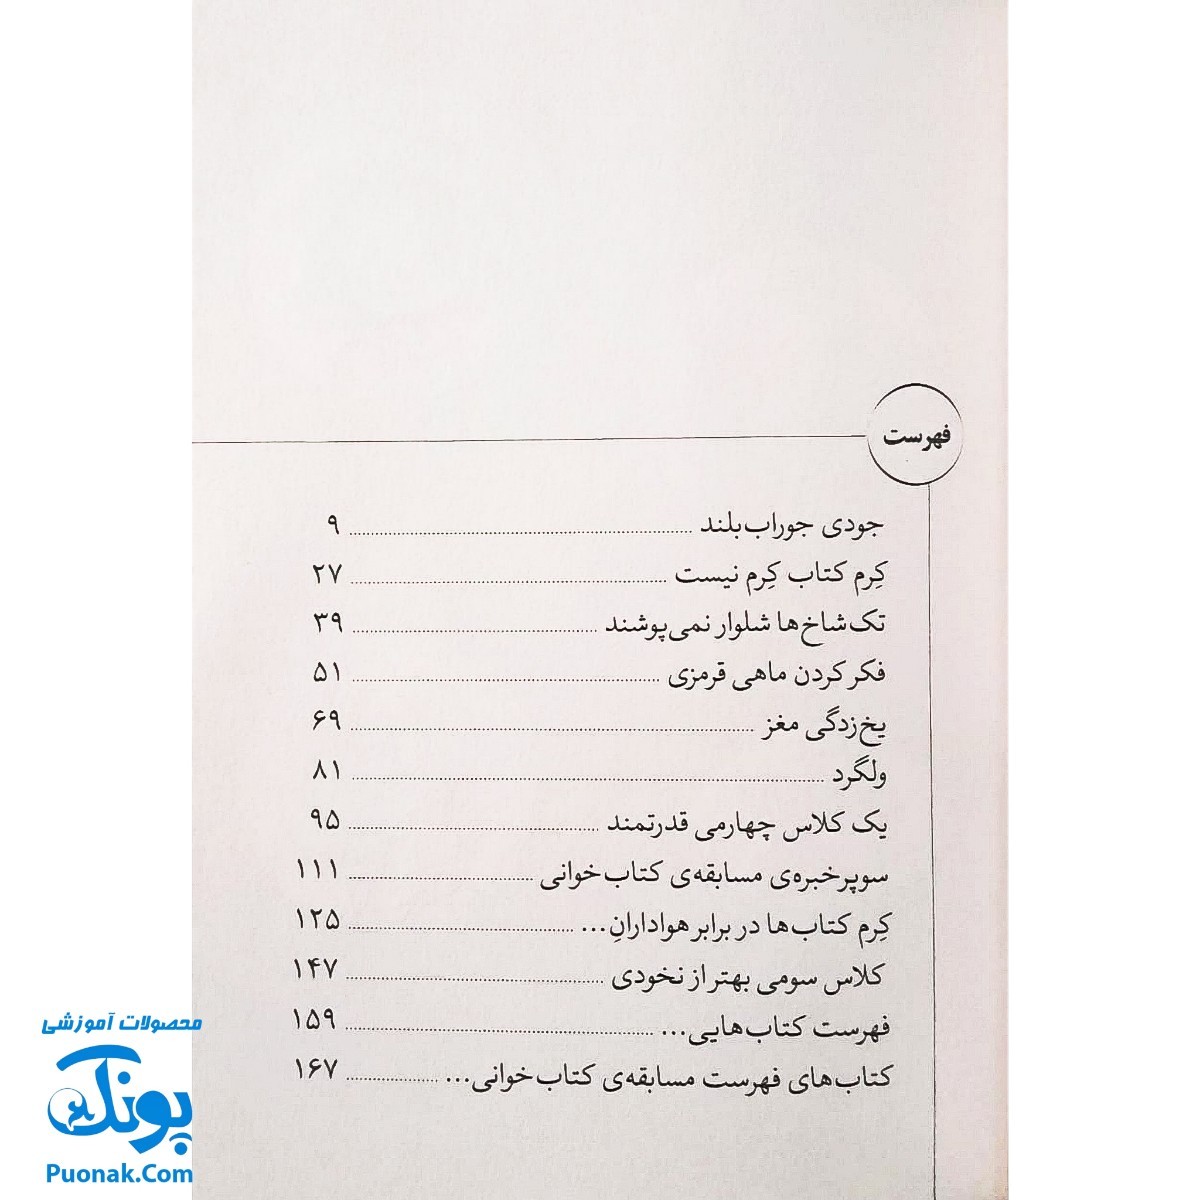 فهرست
جودی جوراب‌بلند ........ ۹
کِرم کتاب کِرم نیست ........ ۲۷
تک‌شاخ‌ها شلوار نمی‌پوشند ........ ۳۹
فکر کردن ماهی قرمزی ........ ۵۱
یخ‌زدگی مغز ........ ۶۹
ولگرد ........ ۸۱
یک کلاس چهارمی قدرتمند ........ ۹۵
سوپرخبره‌ی مسابقه‌ی کتاب‌خوانی ........ ۱۱۱
کِرم کتاب‌ها در برابر هوادارانِ... ........ ۱۲۵
کلاس سومی بهتر از نخودی ........ ۱۴۷
فهرست کتاب‌هایی... ........ ۱۵۹
کتاب‌های فهرست مسابقه‌ی کتاب‌خوانی... ........ ۱۶۷
محصولات آموزشی
پونک
Puonak.Com